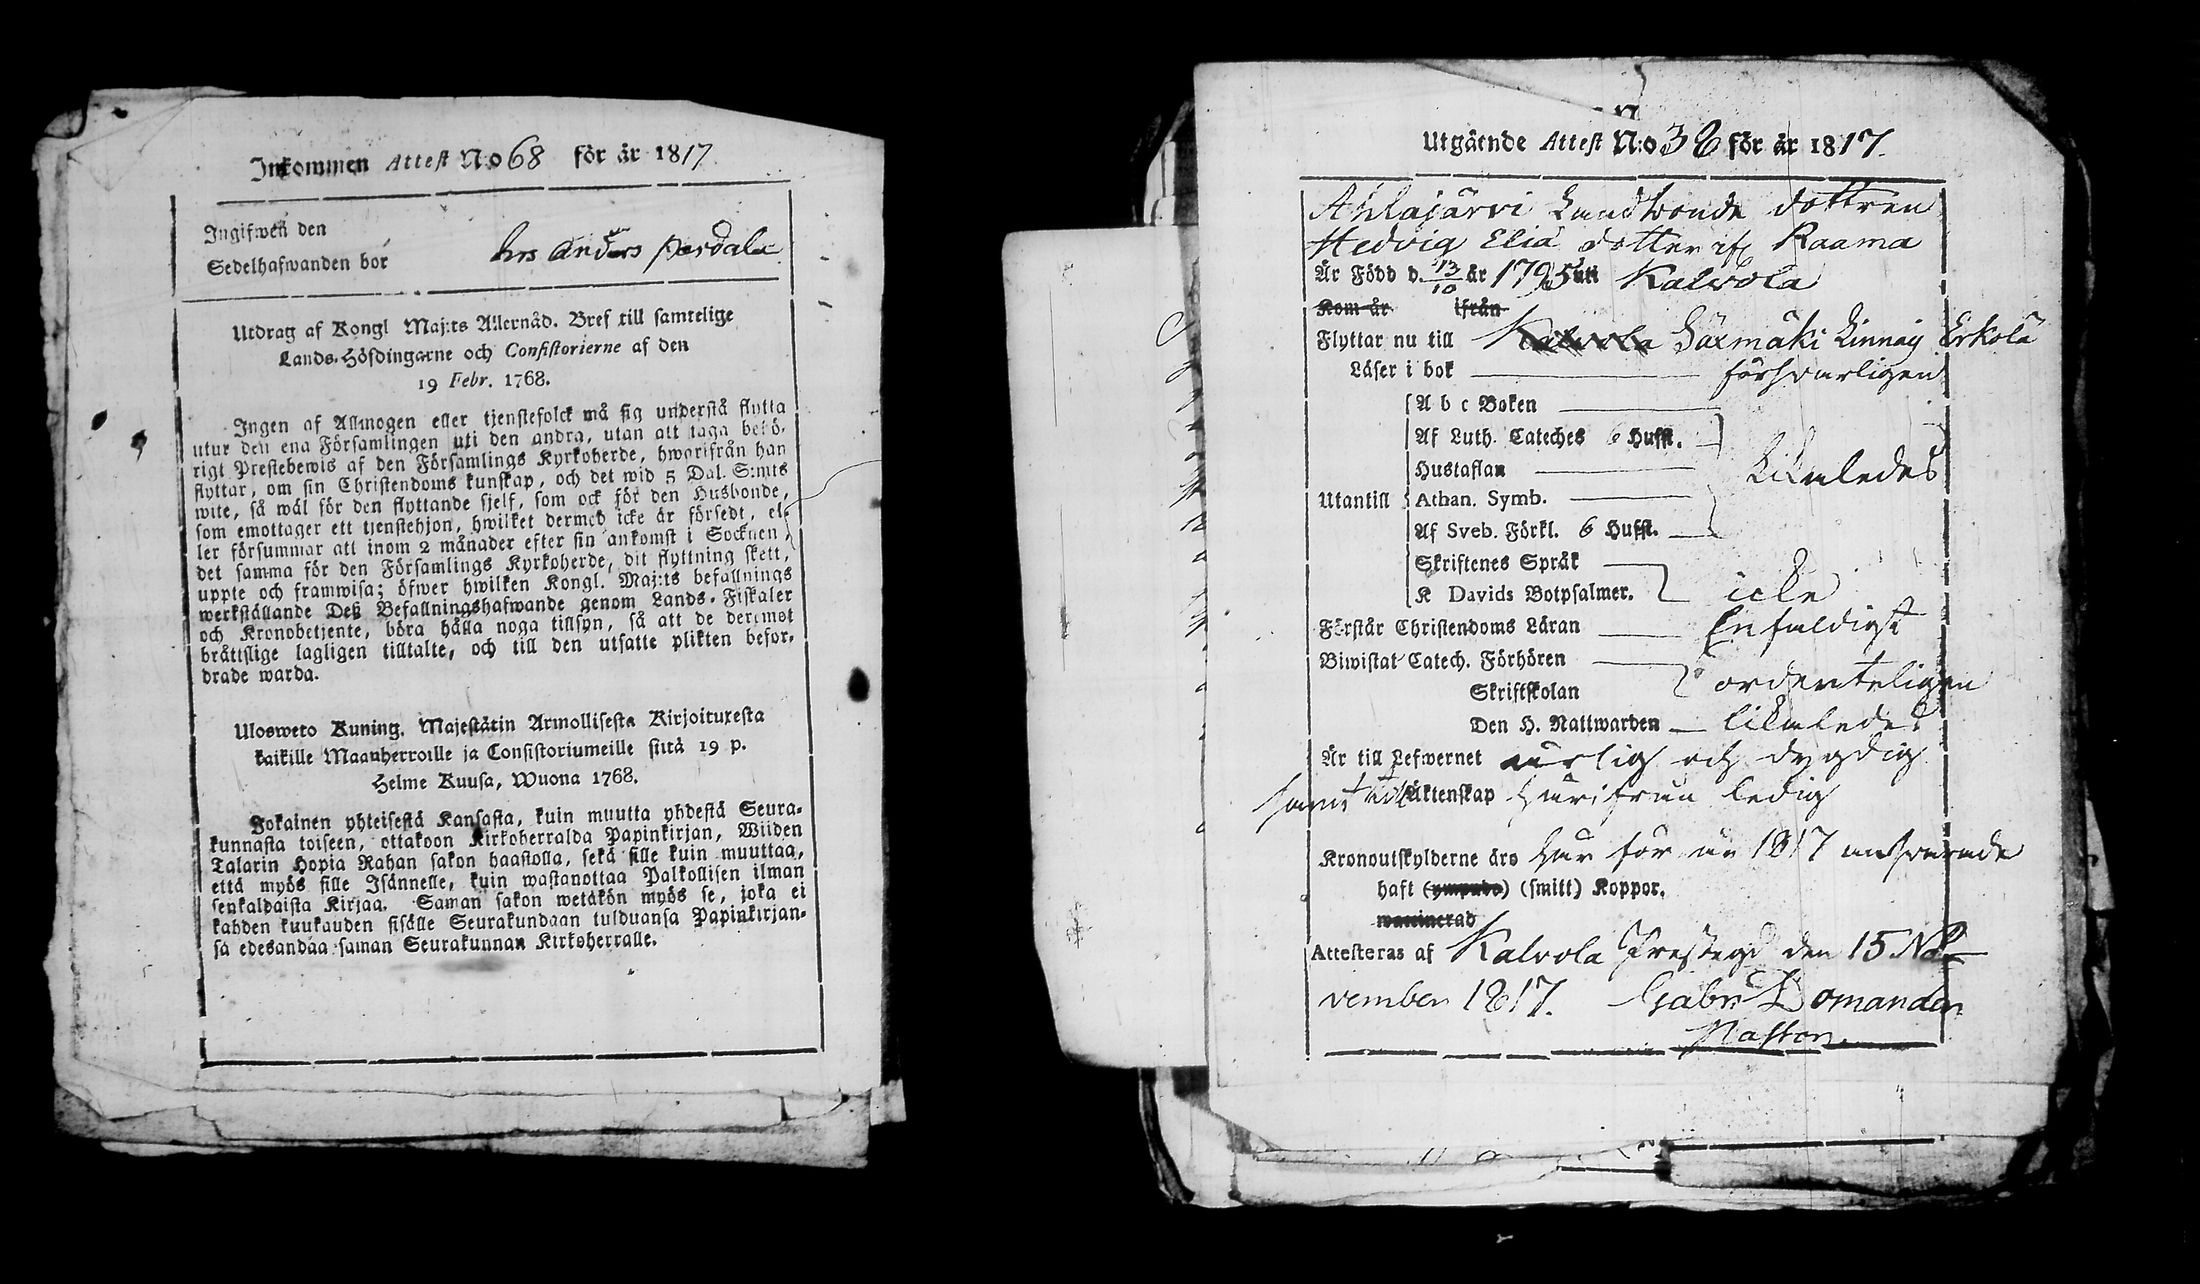 Inkommen Attest N:o 68 för år 1817
Ingifwen den
Sedelhafwanden bor hos Anders Perdala
Utdrag af Kongl Maj:ts Allernåd. Bref till samtelige
Lands-Höfdingarne och Consistorierne af den
19 Febr. 1768.
Ingen af Allmogen eller tjenstefolck må sig understå flytta
utur den ena Församlingen uti den andra, utan att taga behö-
rigt Prestebewis af den Församlings Kyrkoherde, hworifrån han
flyttar, om sin Christendoms kunskap, och det wid 5 Dal. S:mts
wite, så wäl för den flyttande sjelf, som ock för den Husbonde,
som emottager ett tjenstehjon, hwilket dermed icke är försedt, el-
ler försummar att inom 2 månader efter sin ankomst i Socknen,
det samma för den Församlings Kyrkoherde, dit flyttning skett,
uppte och framwisa; öfwer hwilken Kongl. Maj:ts befallnings
werkställande Deß Befallningshafwande genom Lands-Fiskaler
och Kronobetjente, böra hålla noga tillsyn, så att de deremot
bråttslige lagligen tilltalte, och till den utsatte plikten befor-
drade warda.
Ulosweto Kuning. Majestätin Armollisesta Kirjoituxesta
kaikille Maanherroille ja Consistoriumeille siitä 19 p.
Helme Kuusa, Wuona 1768.
Jokainen yhteisestä Kansasta, kuin muutta yhdestä Seura-
kunnasta toiseen, ottakoon Kirkoherralda Papinkirjan, Wiiden
Talarin Hopia Rahan sakon haastolla, sekä sille kuin muuttaa,
että myös sille Isännelle, kuin wastanottaa Palkollisen ilman
senkaldaista Kirjaa. Saman sakon wetäkön myös se, joka ei
kahden kuukauden sisälle Seurakundaan tulduansa Papinkirjan-
sa edesandaa saman Seurakunnan Kirkoherralle.
Utgående Attest N:o 38 för år 1817.
Ahlajärvi Landbonde dottren
Hedvig Elia dotter if Raama
Är Född d. 13/10 år 1795 uti Kalvola
Kom år ifrån
Flyttar nu till Kalvola Säxmäki Linnaig Erkola
Läser i bok försvarligen
A b c Boken
Af Luth. Cateches 6 Hufst.
Hustaflan
Likaledes
Utantill Athan. Symb.
Af Sveb. Förkl. 6 Hufst.
Skriftenes Språk
K Davids Botpsalmer. icke
Förstår Christendoms Läran Enfaldigt
Biwistat Catech. Förhören
Skriftskolan ordenteligen
Den H. Nattwarden likaledes
Är till Lefwernet ärlig och dygdig
samt till Äktenskap härifrån ledig
Kronoutskylderne äro här för år 1817 ansvarade
haft (ympade) (smitt) Koppor.
waccinerad
Attesteras af Kalvola Prestegd den 15 No-
vember 1817. Gabr Domander
Pastor.